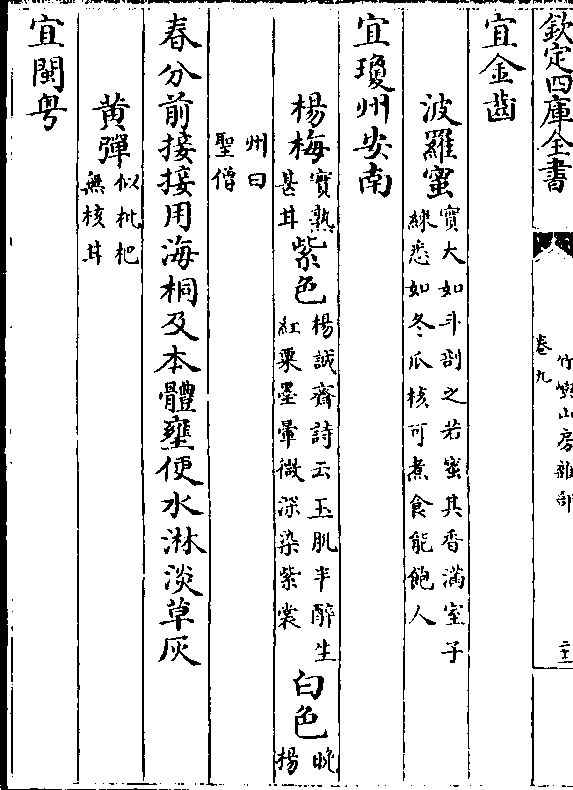 欽定四庫全書
卷九
竹嶼山房雜部
二十二
宜金齒
波羅蜜實大如斗剖之若蜜其香滿室子
練悉如冬瓜核可煮食能飽人
宜瓊州安南
楊梅實熟
甚甘
紫色楊誠齋詩云玉肌半醉生
紅粟墨暈微深染紫裳
白色晚
楊
州曰
聖僧
春分前接接用海桐及本體壅便水淋淡草灰
黄彈似枇杷
無核甘
宜閩粤